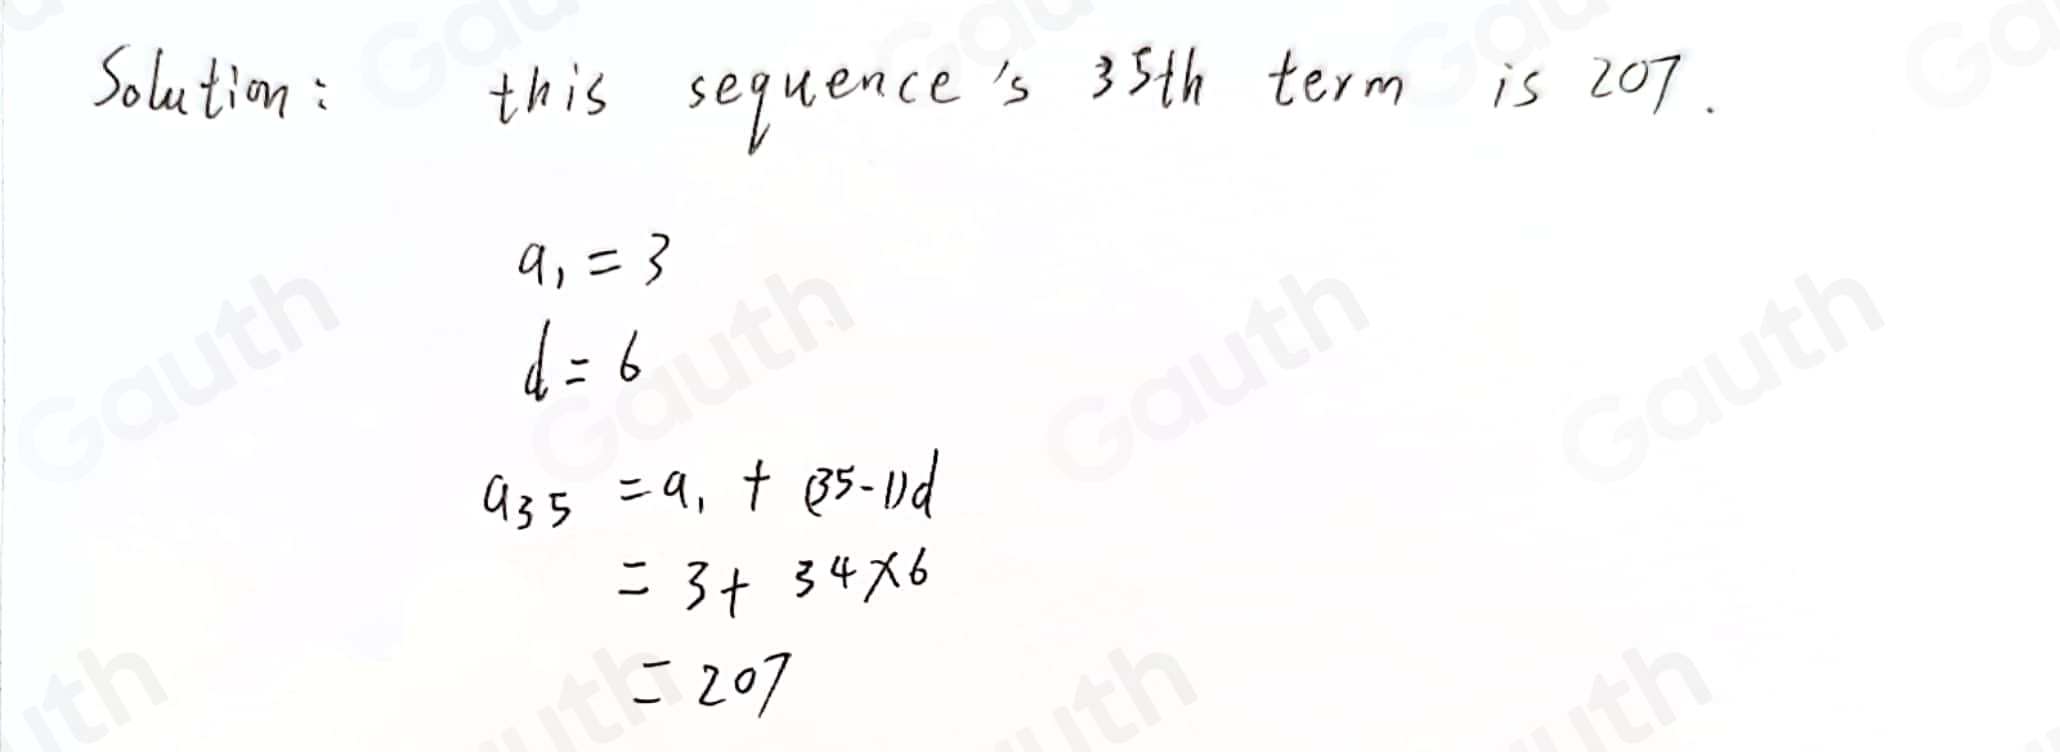 Solution: this sequence's 35th term is 207.
a₁ = 3
d = 6
a₃₅ = a₁ + (35-1)d
= 3 + 34×6
= 207